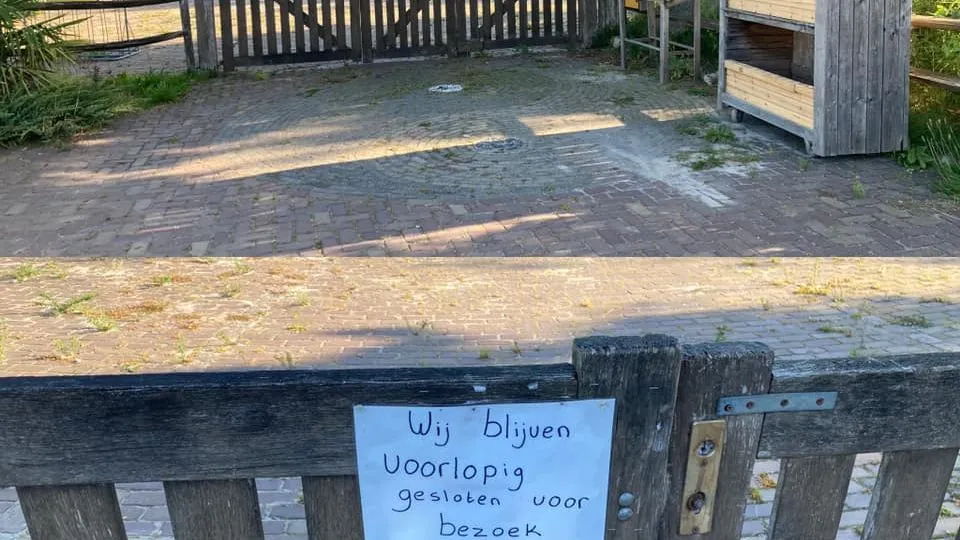 Wij blijven
voorlopig
gesloten voor
bezoek